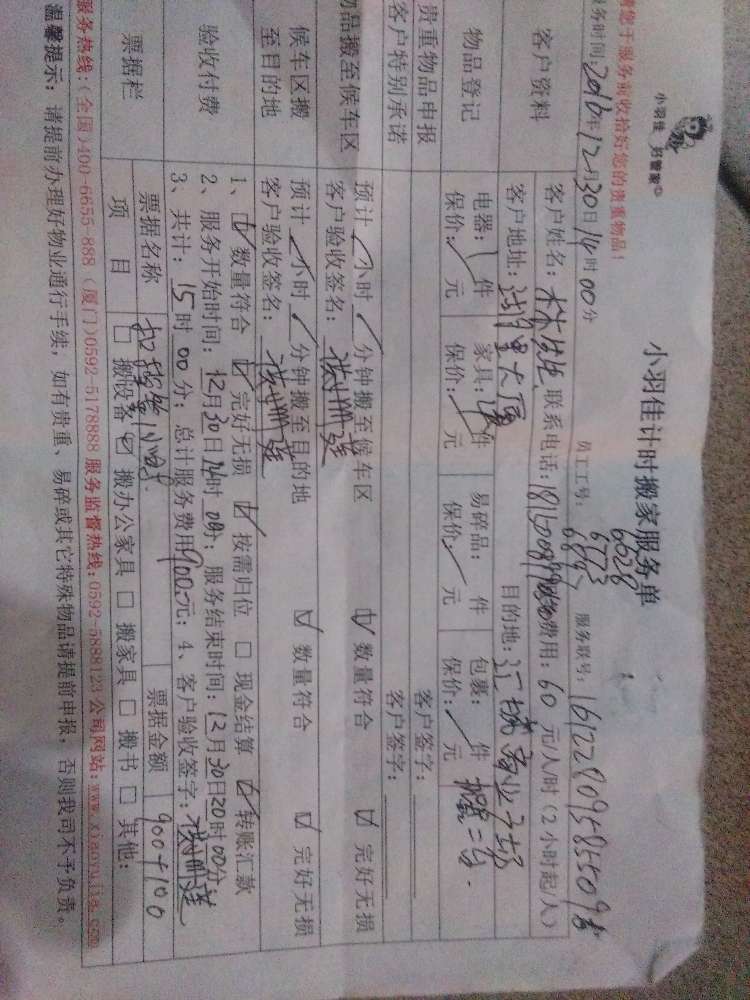 小羽佳 好管家
小羽佳计时搬家服务单
请您于服务前收拾好您的贵重物品!
员工工号: 6628 6773
服务联号: 16122809585509
服务时间: 2016年12月30日14时00分
客户资料
客户姓名: 林先生 联系电话: 费用: 60 元/人/时(2小时起/人)
客户地址: 大厦 目的地: 汇城商业广场
物品登记
电器: 件 家具: 件 易碎品: 件 包裹: 件
保价: 元 保价: 元 保价: 元 保价: 元
贵重物品申报
客户特别承诺
客户签字:
客户签字:
物品搬至候车区
预计 小时 分钟搬至候车区 ☑ 数量符合 ☑ 完好无损
客户验收签名:
候车区搬至目的地
预计 小时 分钟搬至目的地 ☑ 数量符合 ☑ 完好无损
客户验收签名:
验收付费
1、☑ 数量符合 ☑ 完好无损 ☑ 按需归位 □ 现金结算 ☑ 转账汇款
2、服务开始时间: 12月30日14时00分; 服务结束时间: 12月30日20时00分
3、共计: 15时00分; 总计服务费用900元; 4、客户验收签字:
票据栏
票据名称 票据金额 900+100
项目 □ 搬设备 ☑ 搬办公家具 □ 搬家具 □ 搬书 □ 其他:
服务热线:(全国)400-6655-888 (厦门)0592-5178888 服务监督热线:0592-5888123 公司网站:www.xiaoyujia.com
温馨提示: 请提前办理好物业通行手续, 如有贵重、易碎或其它特殊物品请提前申报, 否则我司不予负责。